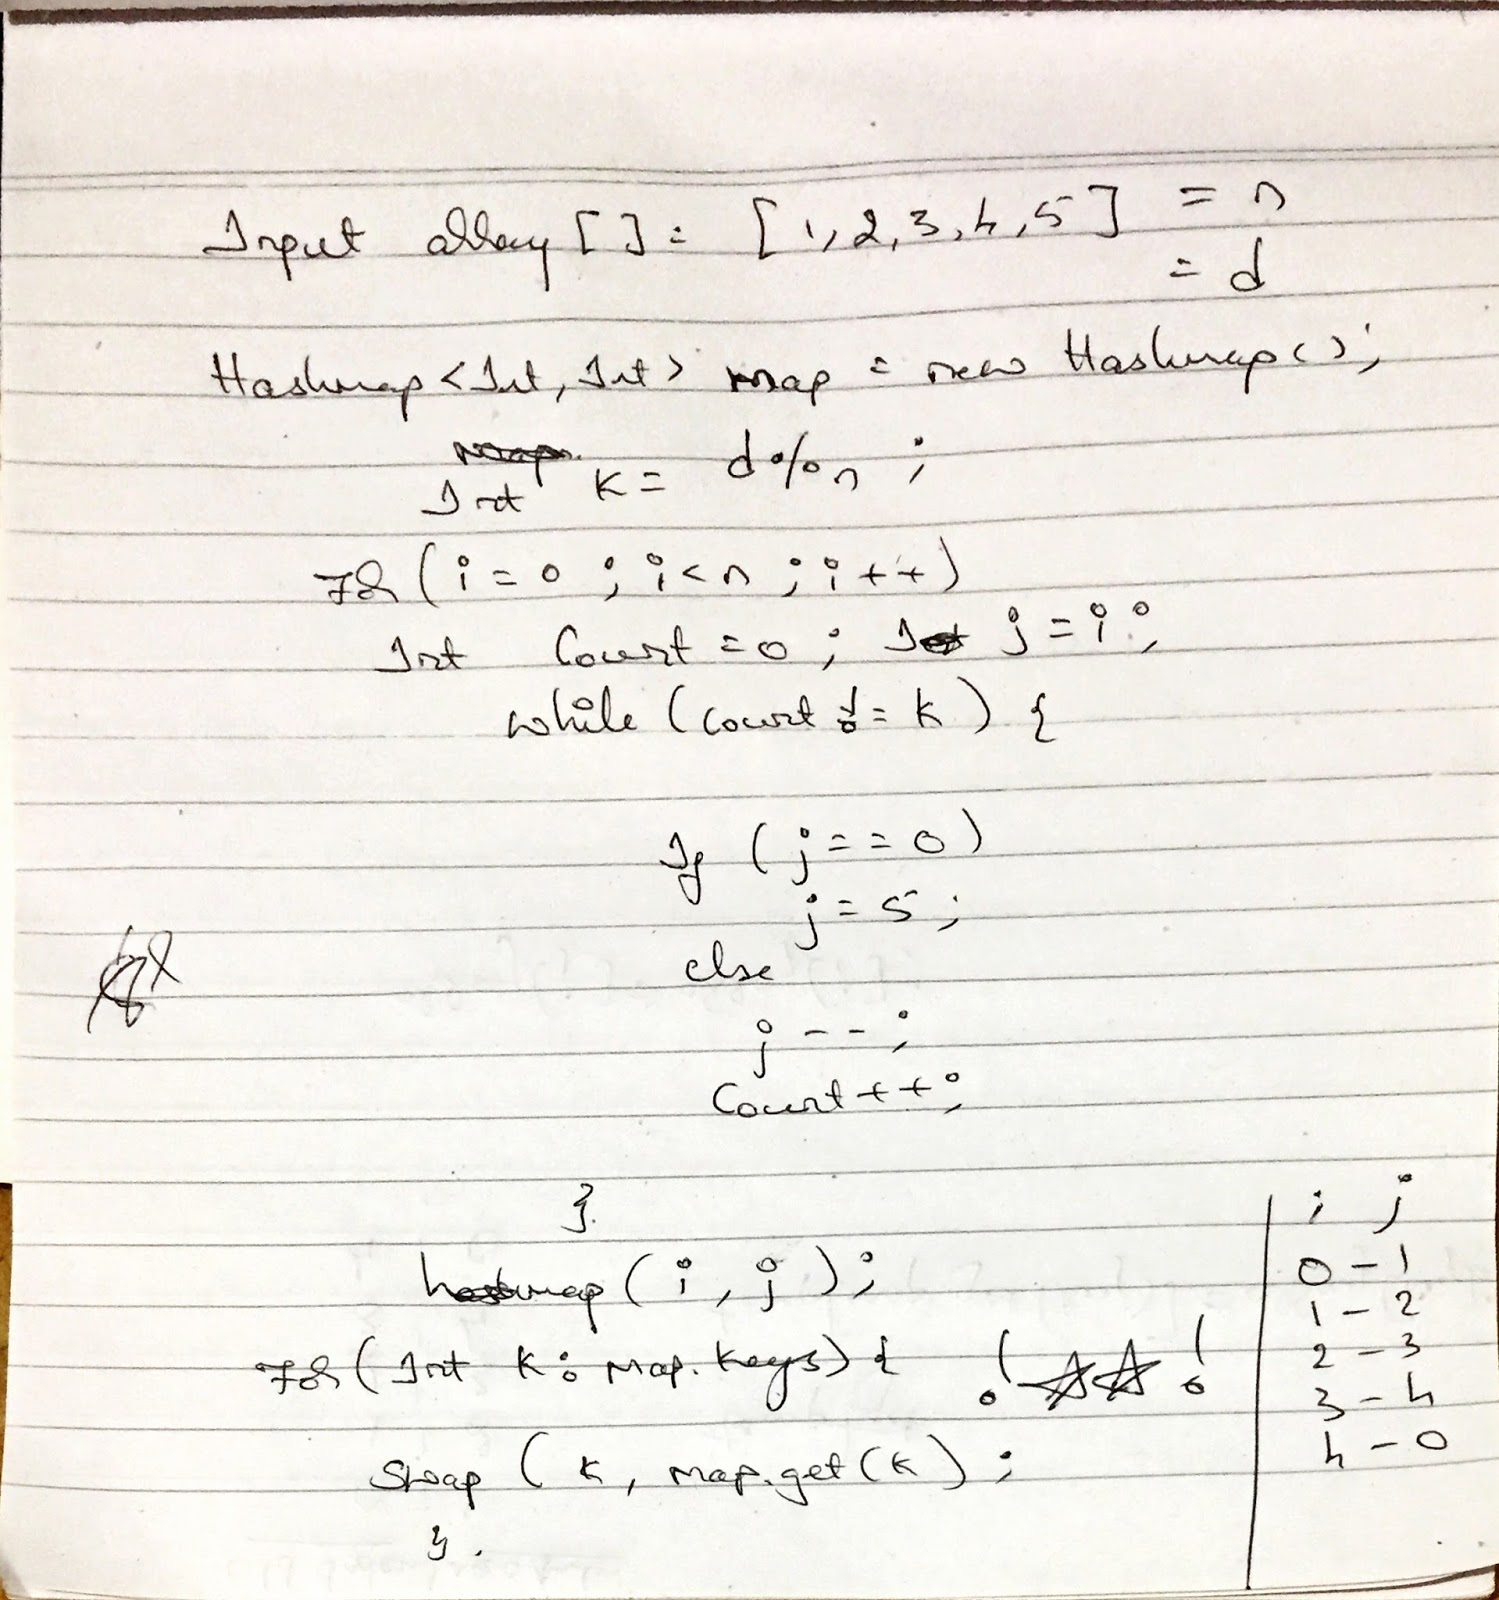 Input array [ ] = [1, 2, 3, 4, 5] = n
= d
Hashmap <Int, Int> map = new Hashmap();
Int k = d % n ;
For (i = 0 ; i < n ; i++)
Int Count = 0 ; Int j = i ;
while (count != k) {
If (j == 0)
j = 5 ;
else
j -- ;
Count ++ ;
}
hashmap (i, j) ;
For (Int k : map.keys) {
Swap (k, map.get(k) ;
} .
i j
0 - 1
1 - 2
2 - 3
3 - 4
4 - 0